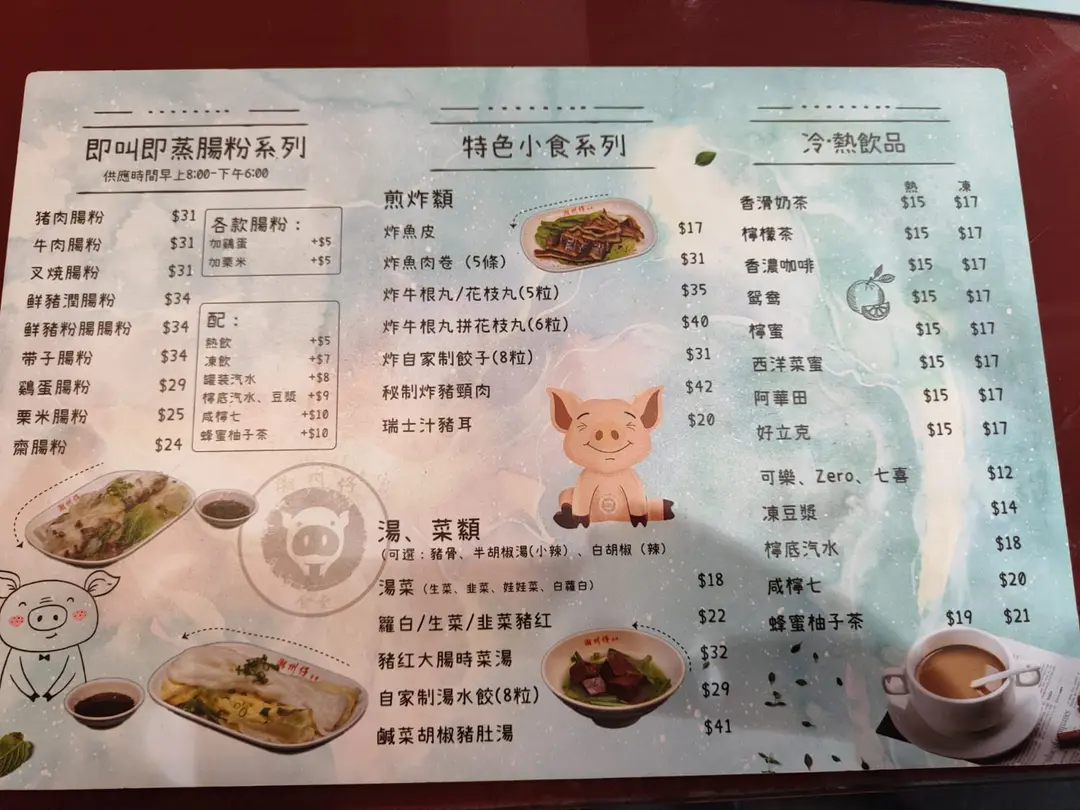 即叫即蒸腸粉系列
供應時間早上8:00-下午6:00
猪肉腸粉 $31
牛肉腸粉 $31
叉燒腸粉 $31
鮮豬潤腸粉 $34
鮮豬粉腸腸粉 $34
帶子腸粉 $34
鷄蛋腸粉 $29
栗米腸粉 $25
齋腸粉 $24
各款腸粉：
加鷄蛋 +$5
加栗米 +$5
配：
熱飲 +$5
凍飲 +$7
罐装汽水 +$8
檸底汽水、豆漿 +$9
咸檸七 +$10
蜂蜜柚子茶 +$10
特色小食系列
煎炸類
炸魚皮 $17
炸魚肉卷 (5條) $31
炸牛根丸/花枝丸(5粒) $35
炸牛根丸拼花枝丸(6粒) $40
炸自家制餃子(8粒) $31
秘制炸豬頸肉 $42
瑞士汁豬耳 $20
湯、菜類
(可選：豬骨、半胡椒湯(小辣)、白胡椒 (辣)
湯菜 (生菜、韭菜、娃娃菜、白蘿白) $18
蘿白/生菜/韭菜豬紅 $22
豬紅大腸時菜湯 $32
自家制湯水餃(8粒) $29
鹹菜胡椒豬肚湯 $41
冷·熱飲品
熱 凍
香滑奶茶 $15 $17
檸檬茶 $15 $17
香濃咖啡 $15 $17
鴛鴦 $15 $17
檸蜜 $15 $17
西洋菜蜜 $15 $17
阿華田 $15 $17
好立克 $15 $17
可樂、Zero、七喜 $12
凍豆漿 $14
檸底汽水 $18
咸檸七 $20
蜂蜜柚子茶 $19 $21